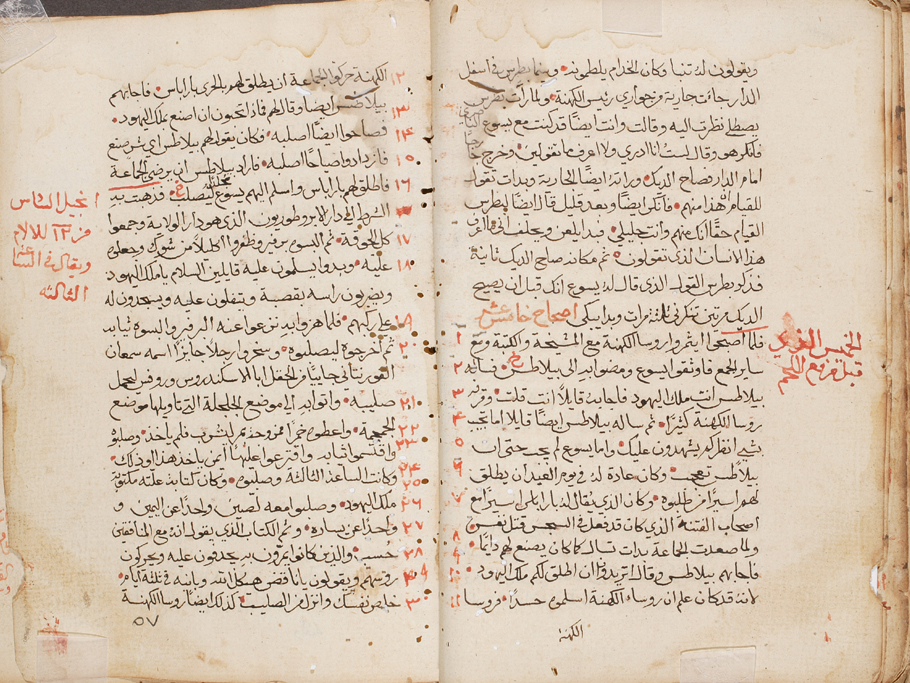 ويقولون له تنبا وكان الخدام يلطمونه وبينما بطرس في اسفل
الدار جاءت جارية من جواري رئيس الكهنة ولما رأت بطرس
يصطلي نظرت اليه وقالت وانت ايضًا قد كنت مع يسوع
فانكر هو وقال لست انا ادري ولا اعرف ما تقولين وخرج
امام الدار فصاح الديك وراته ايضًا الجارية وبدات تقول
للقيام ان هذا منهم فانكر ايضًا وبعد قليل قال ايضًا لبطرس
القيام حقًا انك منهم وانت جليلي فبدا يلعن ويحلف اني ما اعرف
هذا الانسان الذي تقولون ثم مكانه صاح الديك ثانية
فذكر بطرس القول الذي قال له يسوع انك قبل ان يصيح
الديك مرتين تنكرني ثلاث مرات وبدا يبكي اصحاح خامس عشر
فلما أصبحوا ايتمروا روسا الكهنة مع المشيخة والكتبة ومع
ساير الجمع فاوثقوا يسوع ومضوا به الى بيلاطس فساله
بيلاطس انت ملك اليهود فاجابه قايلًا أنت قلت وقرفه
روسا الكهنة كثيرًا ثم ساله بيلاطس ايضًا قايلًا اما تجيب
بشي انظر كم يشهدون عليك واما يسوع لم يجب حتى ان
بيلاطس تعجب وكان عادة له في يوم العيد ان يطلق
لهم اسيرًا من طلبوه وكان الذي يقال له باراباس اسيرًا مع
اصحاب الفتنة الذي كان قد فعل في السجس قتل نفس
ولما صعدت الجماعة بدات تساله كما كان يصنع لهم دائمًا
فاجابهم بيلاطس وقال اتريدوا ان اطلق لكم ملك اليهود
لانه قد كان علم ان روساء الكهنة اسلموه حسدًا فروسا
الكهنة
الخميس
قبل مرفع اللحم
١
٢
٣
٤
٥
٦
٧
٨
٩
١٠
١١
١٢ الكهنة حركوا الجماعة ان يطلق لهم بالحري باراباس فاجابهم
١٣ بيلاطس ايضا وقال لهم فماذا تحبون ان اصنع بملك اليهود
١٤ فصاحوا ايضًا اصلبه فكان يقول لهم بيلاطس اي شر صنع
١٥ فازدادوا صياحًا اصلبه فاراد بيلاطس ان يرضي الجماعة
١٦ فاطلق لهم باراباس واسلم اليهم يسوع ليصلب فذهبت به
الشرط الى دار الابروطوريون الذي هو دار الولاية وجمعوا
١٧ كل الجوقة ثم البسوه برفير وظفروا اكليلًا من شوك وجعلوه
١٨ عليه وبدوا يسلمون عليه قايلين السلام يا ملك اليهود
ويضربون راسه بقصبة ويتفلون عليه ويسجدون له
على ركبهم فلما هزوا به نزعوا عنه البرفير والبسوه ثيابه
٢٠ ثم اخرجوه ليصلبوه وسخروا رجلًا جايزًا اسمه سمعان
القورنتاني جاييًا من الحقل ابا الاسكندروس وروفس ليحمل
٢١ صليبه واتوا به الى موضع الجلجلة التي تاويلها موضع
٢٢ الجمجمة واعطوه خمرًا ممزوجة بمر ليشرب فلم ياخذ وصلبوه
٢٣ واقتسموا ثيابه واقترعوا عليها أمن ياخذ هذا او ذلك
٢٤ وكانت الساعة الثالثة وصلبوه وكان كتابة علته مكتوبة
٢٥
٢٦ ملك اليهود وصلبوا معه لصين واحدًا عن اليمين و
٢٧ واحدًا عن يساره وتم الكتاب الذي يقول انه مع المنافقين
٢٨ حسب والذين كانوا يمرون به يجدفون عليه ويحركون
روسهم ويقولون يا ناقض هيكل الله وبانيه في ثلثة ايام
خلص نفسك وانزل من الصليب كذلك ايضًا روسا الكهنة
٥٧
انجيل السادس
من ١٢ للالام
ويقال في الساعة
الثالثه